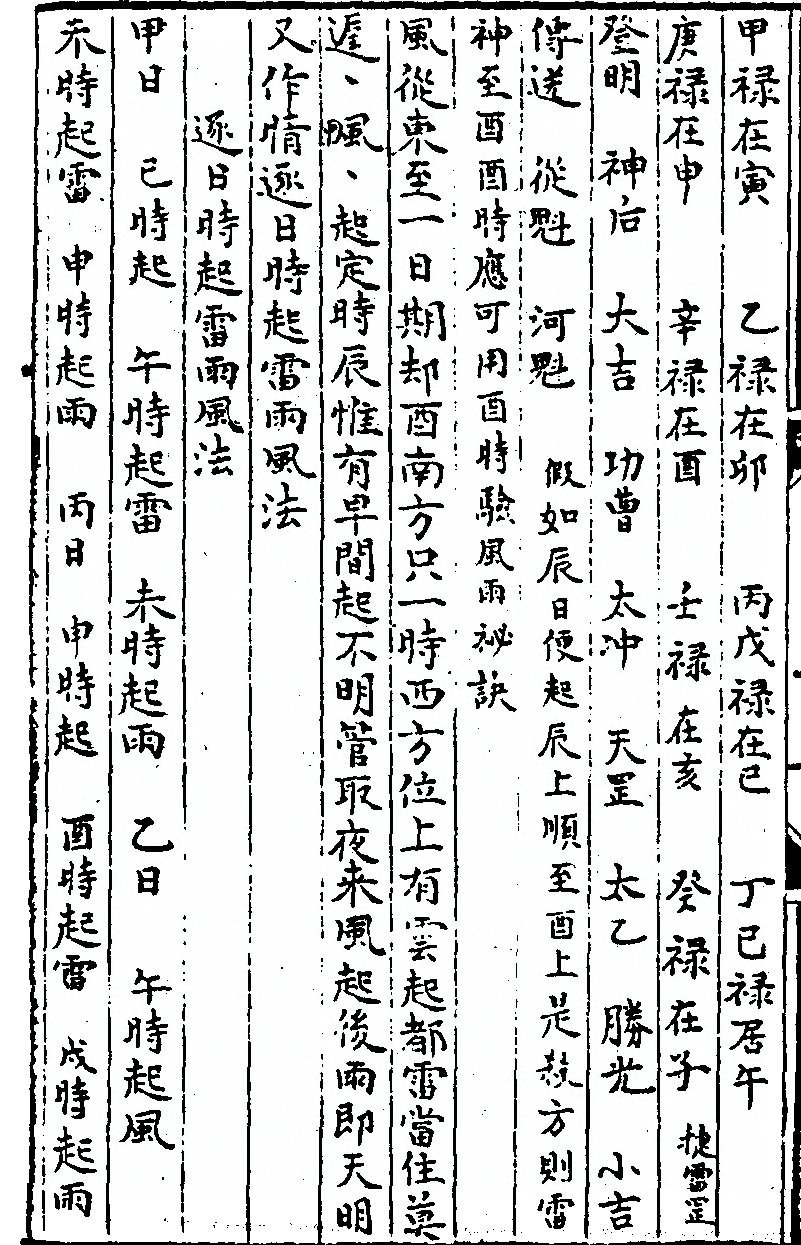 甲禄在寅 乙禄在卯 丙戊禄在巳 丁己禄居午
庚禄在申 辛禄在酉 壬禄在亥 癸禄在子 捷雷罡
登明 神后 大吉 功曹 太冲 天罡 太乙 勝光 小吉
傳送 從魁 河魁 假如辰日便起辰上順至酉上是殺方則雷
神至酉酉時應可用酉時驗風雨祕訣
風從東至一日期却酉南方只一時西方位上有雲起都雷當住莫
遲、颿、起定時辰惟有早間起不明管取夜来風起後雨即天明
又作情逐日時起雷雨風法
逐日時起雷雨風法
甲日 巳時起 午時起雷 未時起雨 乙日 午時起風
未時起雷 申時起雨 丙日 申時起 酉時起雷 戍時起雨